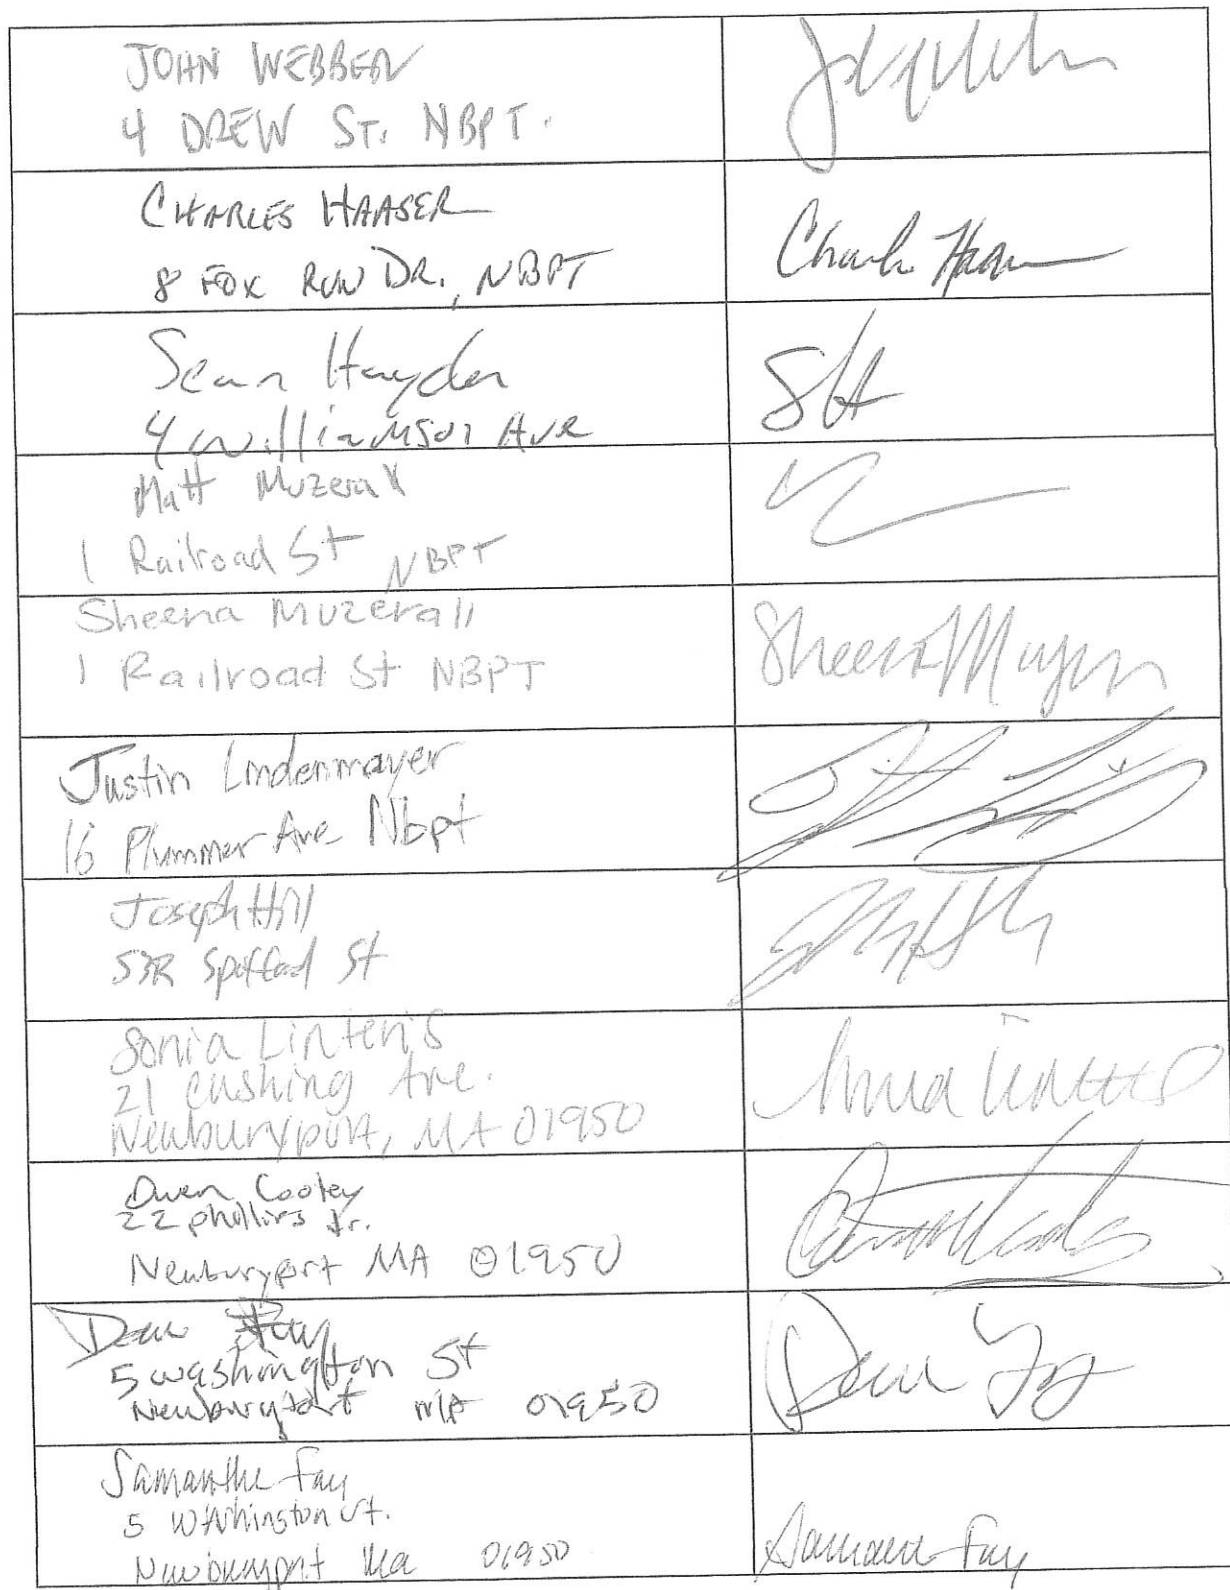 JOHN WEBBER
4 DREW ST. NBPT.
CHARLES HAASER
Charles Haaser
8 FOX RUN DR., NBPT
Sean Hayden
SH
4 Williamson Ave
Matt Muzerall
1 Railroad St NBPT
Sheena Muzerall
1 Railroad St NBPT
Justin Lindenmayer
16 Plummer Ave Nbpt
Joseph Hill
53R Spofford St
Sonia Linteris
21 Cushing Ave.
Newburyport, MA 01950
Owen Cooley
22 phillips dr.
Newburyport MA 01950
5 Washington St
Newburyport MA 01950
Samantha Fay
5 Washington St.
Newburyport Ma 01950
Samantha Fay